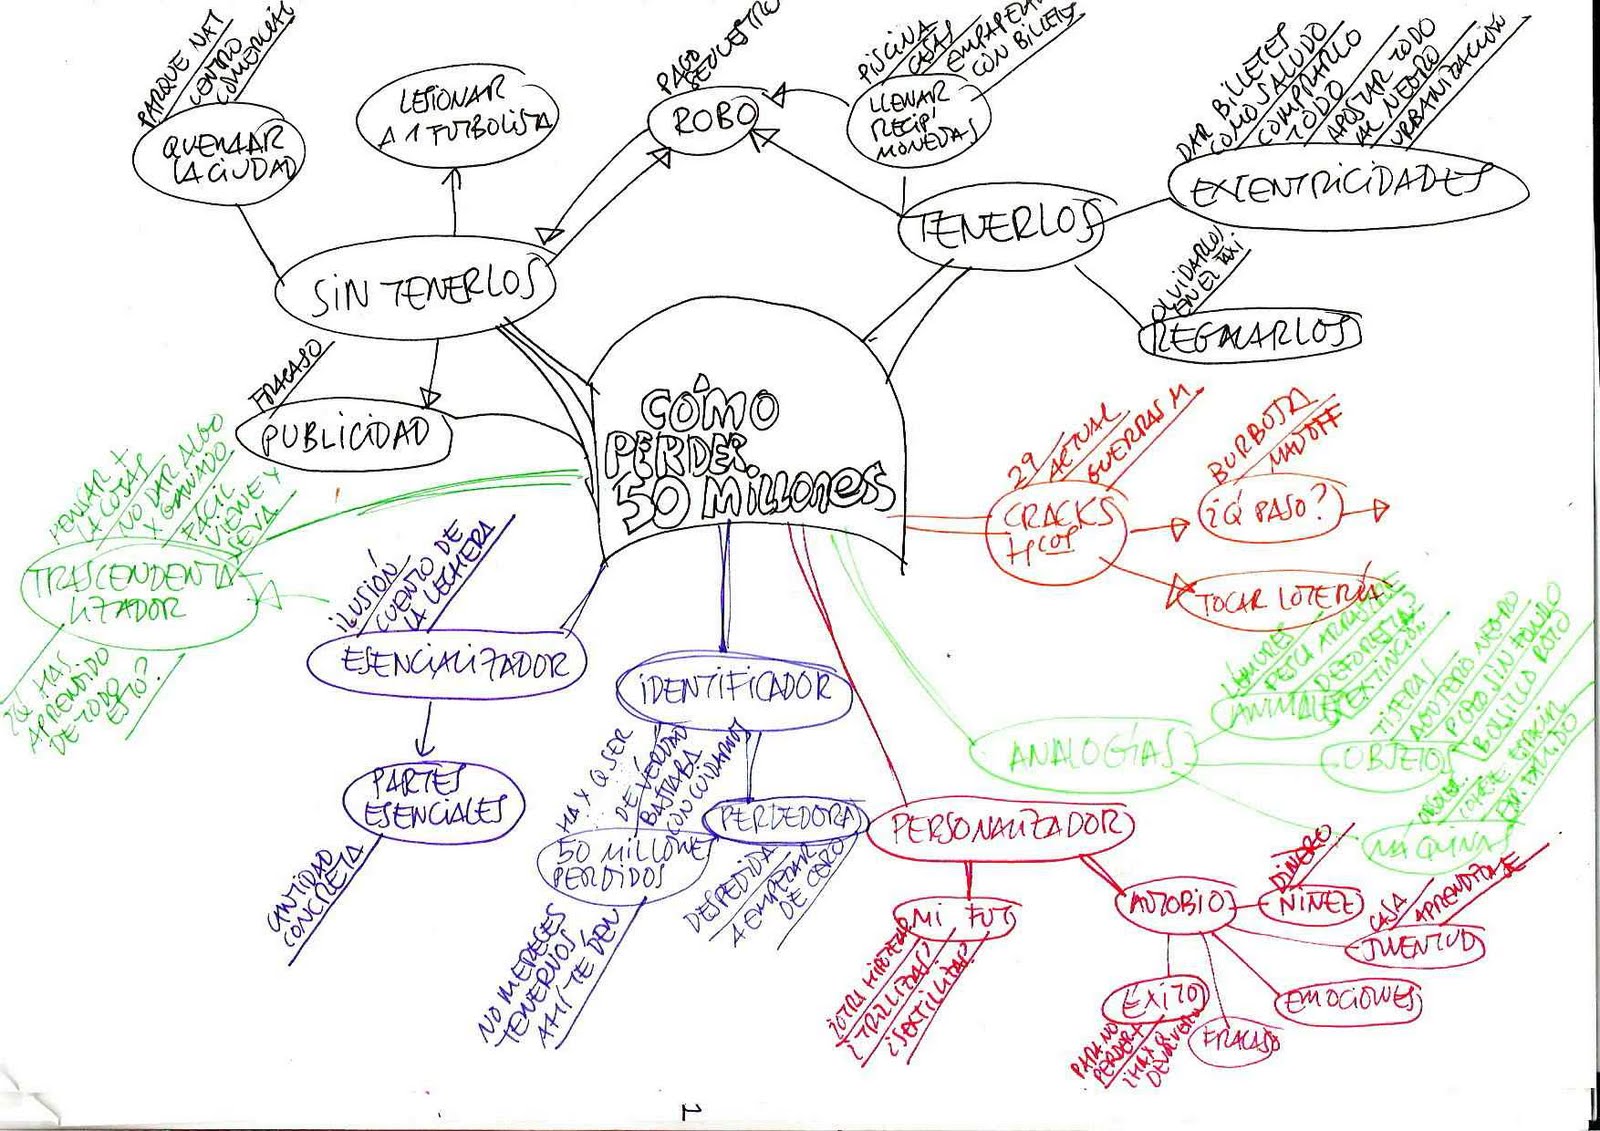 PARQUE NAT
CENTRO
COMERCIAL
QUEMAR
LA CIUDAD
LESIONAR
A 1 FUTBOLISTA
PAGO
SECUESTRO
ROBO
PISCINA
CASAS
EMPAPELAR
CON BILLETES
LLENAR
RECIP.
MONEDAS
DAR BILLETES
COMO SALUDO
COMPRARLO
TODO
APOSTAR TODO
AL NEGRO
URBANIZACIÓN
EXCENTRICIDADES
TENERLOS
OLVIDARLOS
EN EL TAXI
REGALARLOS
SIN TENERLOS
FRACASO
PUBLICIDAD
CÓMO
PERDER
50 MILLONES
29
ACTUAL
GUERRAS M.
CRACKS
HCOS
BURBUJA
MADOFF
¿Q PASO?
TOCAR LOTERÍA
PENSAR +
LA COSAS
NO DAR ALGO
X GANADO
FÁCIL
VIENE Y
SE VA
TRASCENDENTA-
LIZADOR
¿Q HAS
APRENDIDO
DE TODO
ESTO?
ILUSIÓN
CUENTO DE
LA LECHERA
ESENCIALIZADOR
PARTES
ESENCIALES
CANTIDAD
CONCRETA
IDENTIFICADOR
HAY Q SER
DE VERDAD
BASTARA
CON CUIDARNOS
50 MILLONES
PERDIDOS
NO MERECES
TENERNOS
AHÍ TE DEN
PERDEDORA
DESPEDIDA
A EMPEZAR
DE CERO
PERSONALIZADOR
MI FUT
¿OTRA HIPOTECA?
¿TRILLIZAS?
¿SEXTILLIZAS?
AUTOBIO
DINERO
NIÑEZ
CASA
APRENDIZAJE
JUVENTUD
EMOCIONES
FRACASO
ÉXITO
PARA NO
PERDER +
¡HAY Q
DEVOLVER!
ANALOGÍAS
LÉMURES
PESCA ARRASTRE
DEFORESTA
EXTINCIÓN
ANIMALES
TIJERA
AGUJERO NEGRO
POZO SIN FONDO
BOLSILLO ROTO
OBJETOS
MÁQUINAS
1